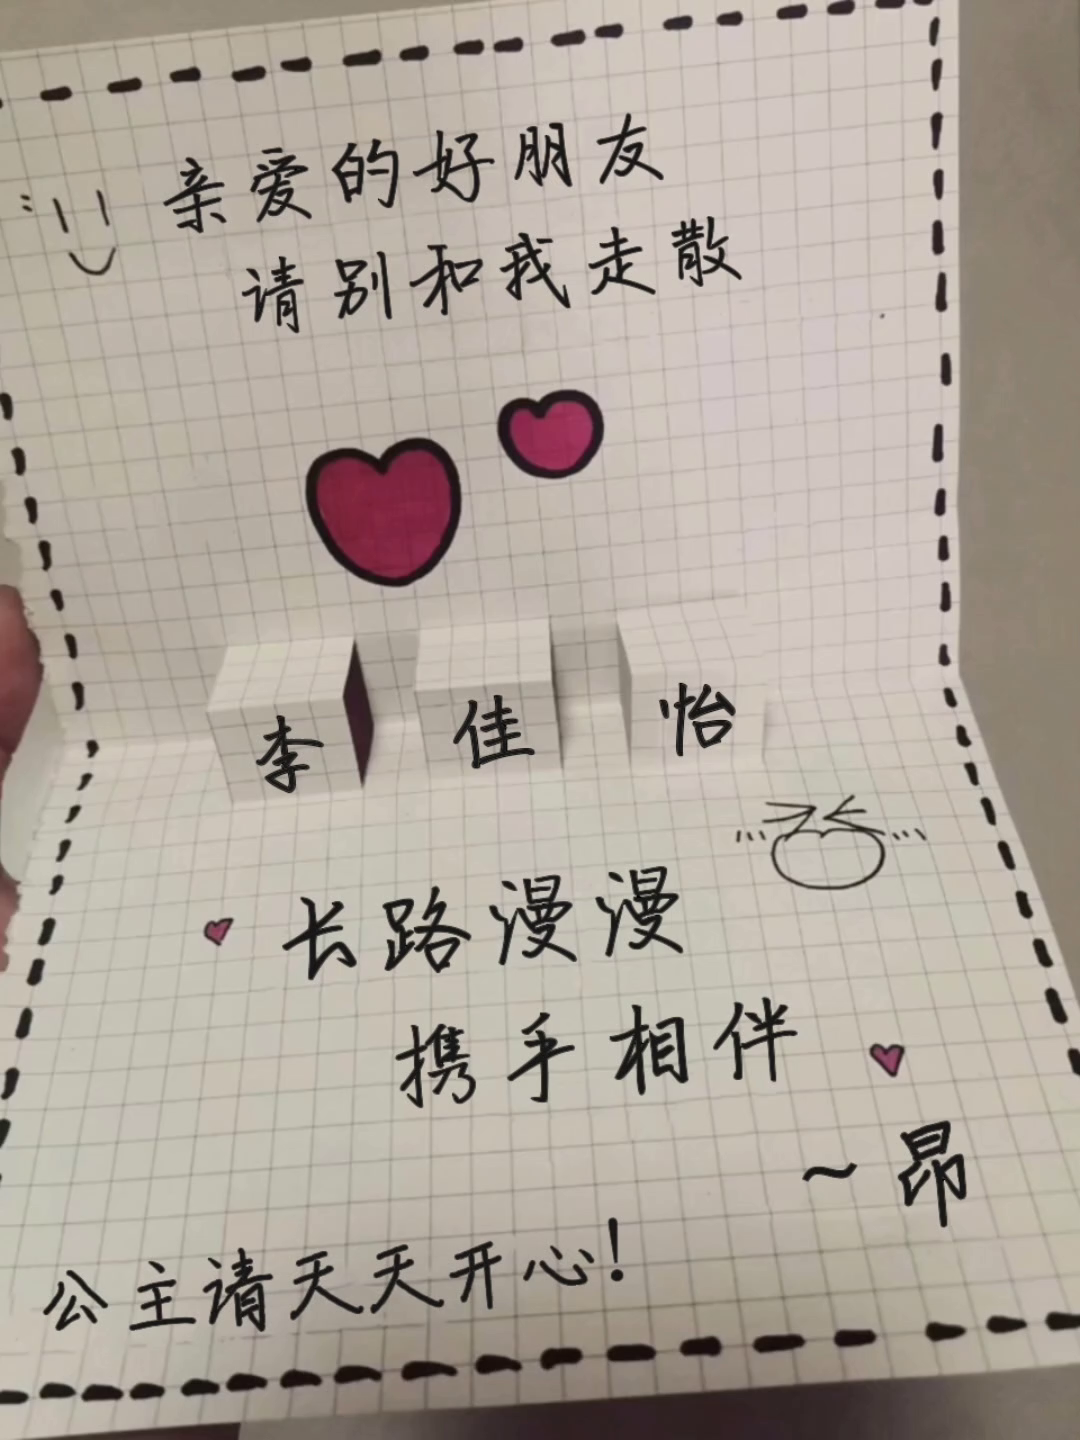 亲爱的好朋友
请别和我走散
李佳怡
长路漫漫
携手相伴
~昂
公主请天天开心!